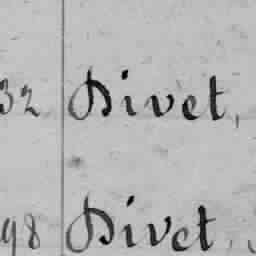 32 Divet,
98 Divet,